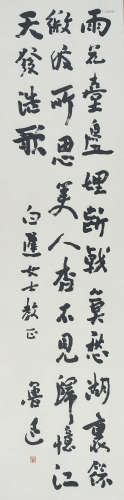 雨花臺邊埋斷戟莫愁湖裏餘
微波所思美人杳不見歸憶江
天發浩歌
白蕉女士教正
魯迅